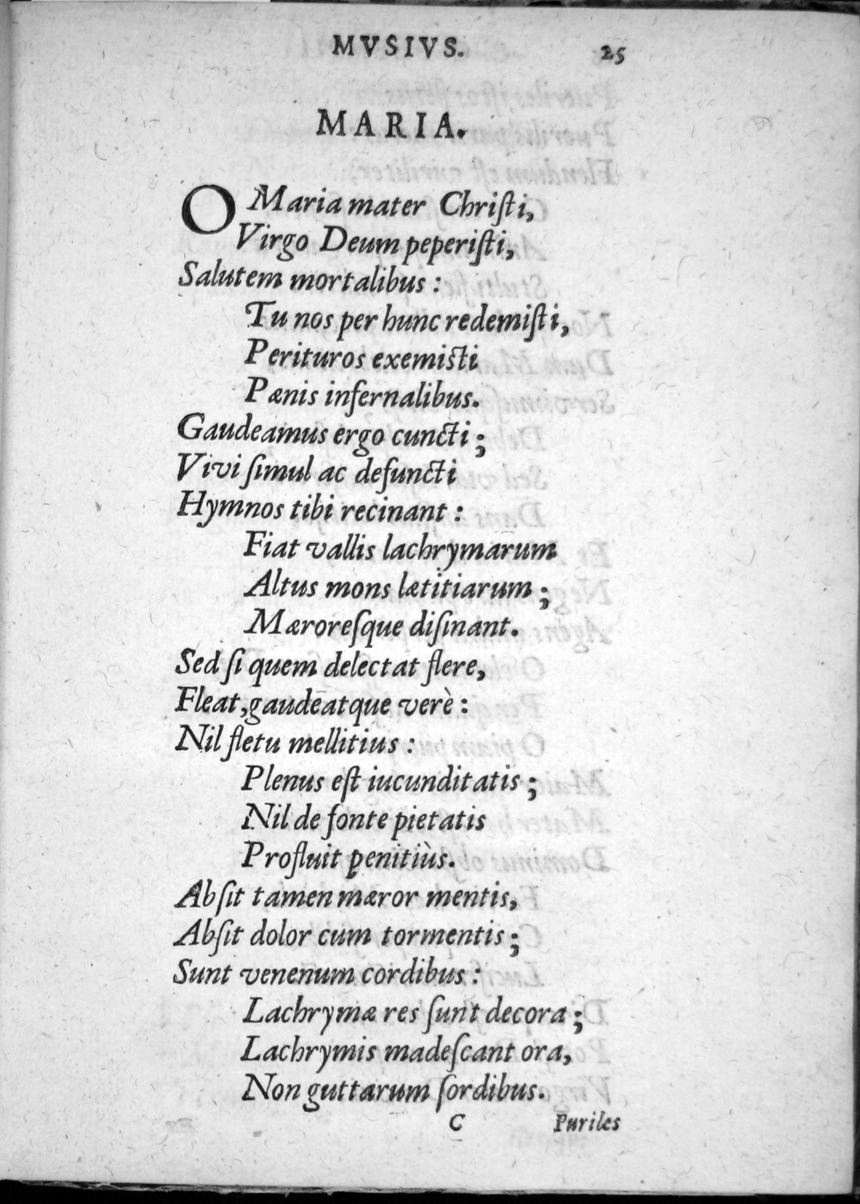 MVSIVS. 25
MARIA.
O Maria mater Chriſti,
Virgo Deum peperiſti,
Salutem mortalibus :
Tu nos per hunc redemiſti,
Perituros exemisti
Pænis infernalibus.
Gaudeamus ergo cuncti ;
Vivi ſimul ac defuncti
Hymnos tibi recinant :
Fiat vallis lachrymarum
Altus mons lætitiarum ;
Mæroreſque diſinant.
Sed ſi quem delectat flere,
Fleat, gaudeatque verè :
Nil fletu mellitius :
Plenus eſt iucunditatis ;
Nil de fonte pietatis
Profluit penitiùs.
Abſit tamen mæror mentis,
Abſit dolor cum tormentis ;
Sunt venenum cordibus :
Lachrymæ res ſunt decora ;
Lachrymis madeſcant ora,
Non guttarum ſordibus.
C Puriles